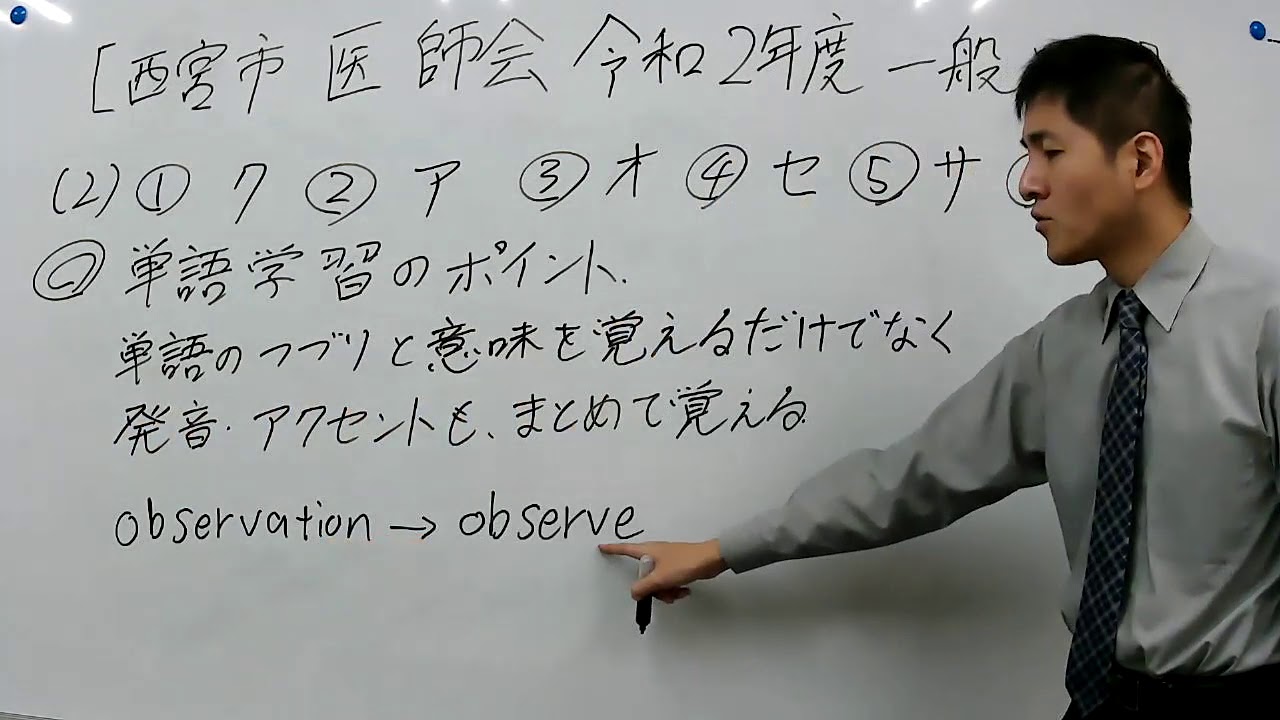 [西宮市 医師会 令和2年度 一般
(2) ① ク ② ア ③ オ ④ セ ⑤ サ
◎ 単語学習のポイント.
単語のつづりと意味を覚えるだけでなく
発音・アクセントも、まとめて覚える.
observation → observe